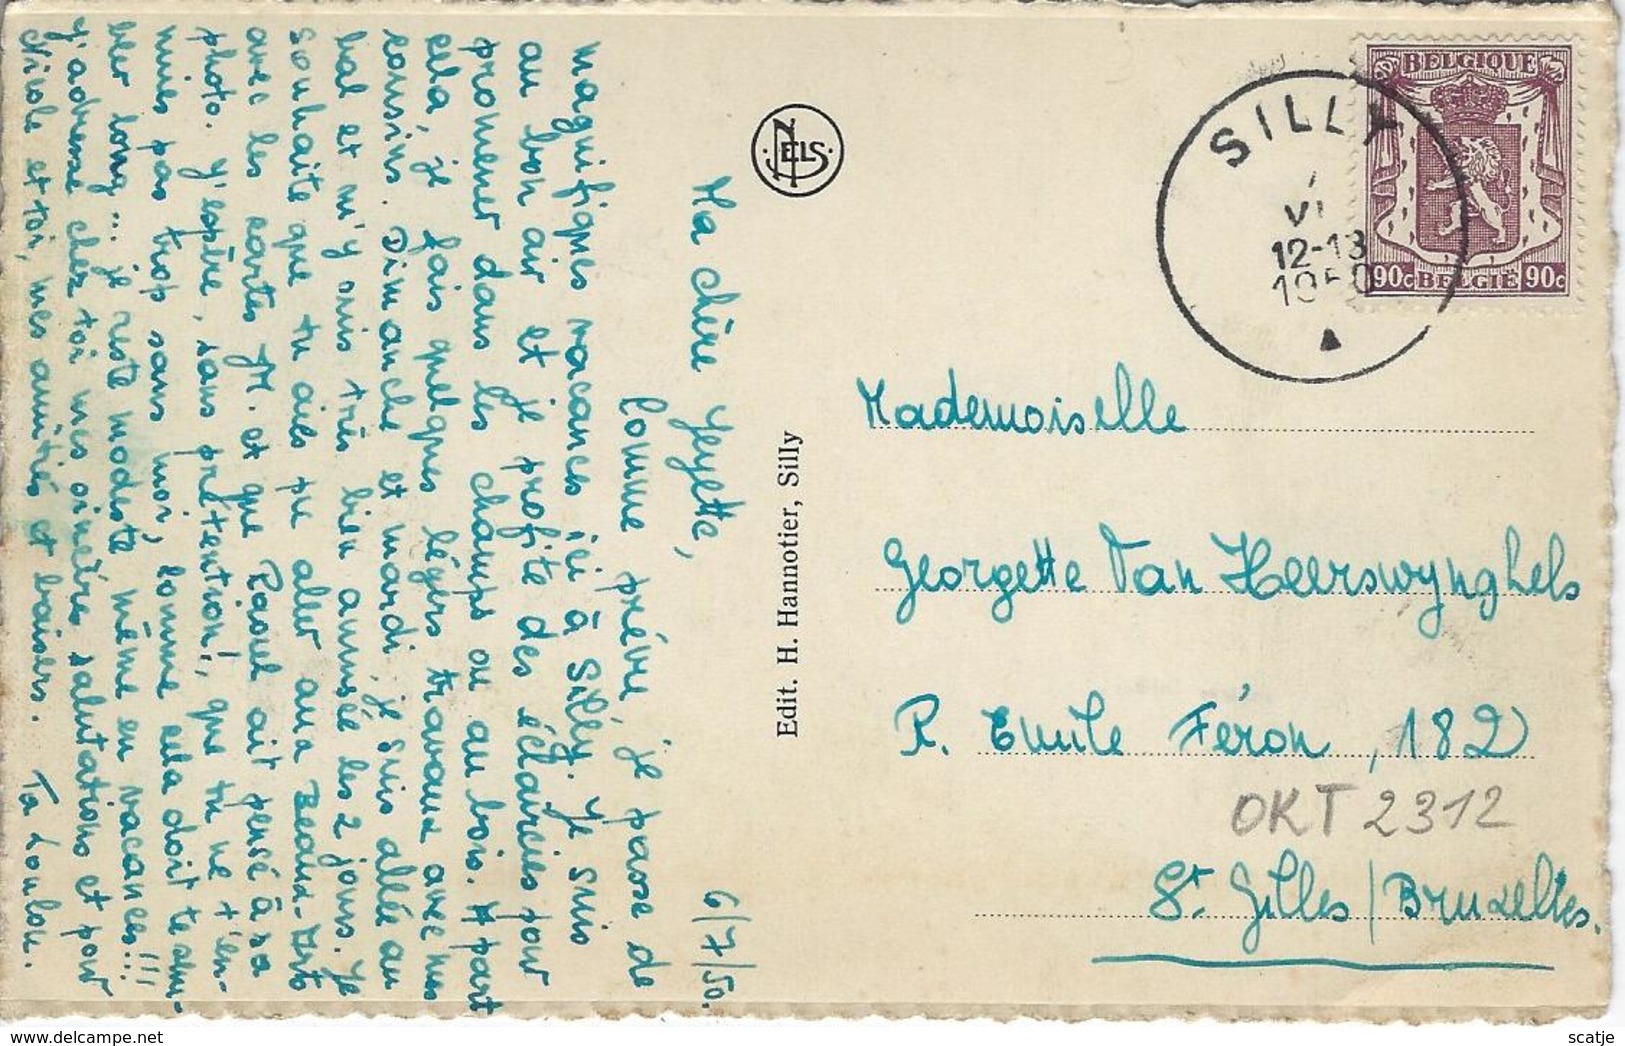 Ma chère Yeyette,
6/7/50.
Comme prévu, je passe de
magnifiques vacances ici à Silly. Je suis
au bon air et je profite des éclaircies pour
promener dans les champs ou au bois. A part
cela, je fais quelques légers travaux avec mes
cousins. Dimanche et mardi, je suis allée au
bal et m'y suis très bien amusée les 2 jours. Je
souhaite que tu aies pu aller aux Beaux-Arts
avec les cartes M. et que Raoul ait pensé à sa
photo. J'espère, sans prétention!, que tu ne t'en-
nuies pas trop sans moi, comme cela doit te sem-
bler long... je reste modeste même en vacances!!!
J'adresse chez toi mes sincères salutations et pour
Nicole et toi, mes amitiés et baisers. Ta Loulou.
NELS
Edit. H. Hannotier, Silly
SILLY
VI
12-13
1950
BELGIQUE
90c BELGIË 90c
Mademoiselle
Georgette Van Heerswynghels
R. Emile Féron, 182
OKT 2312
St Gilles/Bruxelles.
delcampe.net
scatje